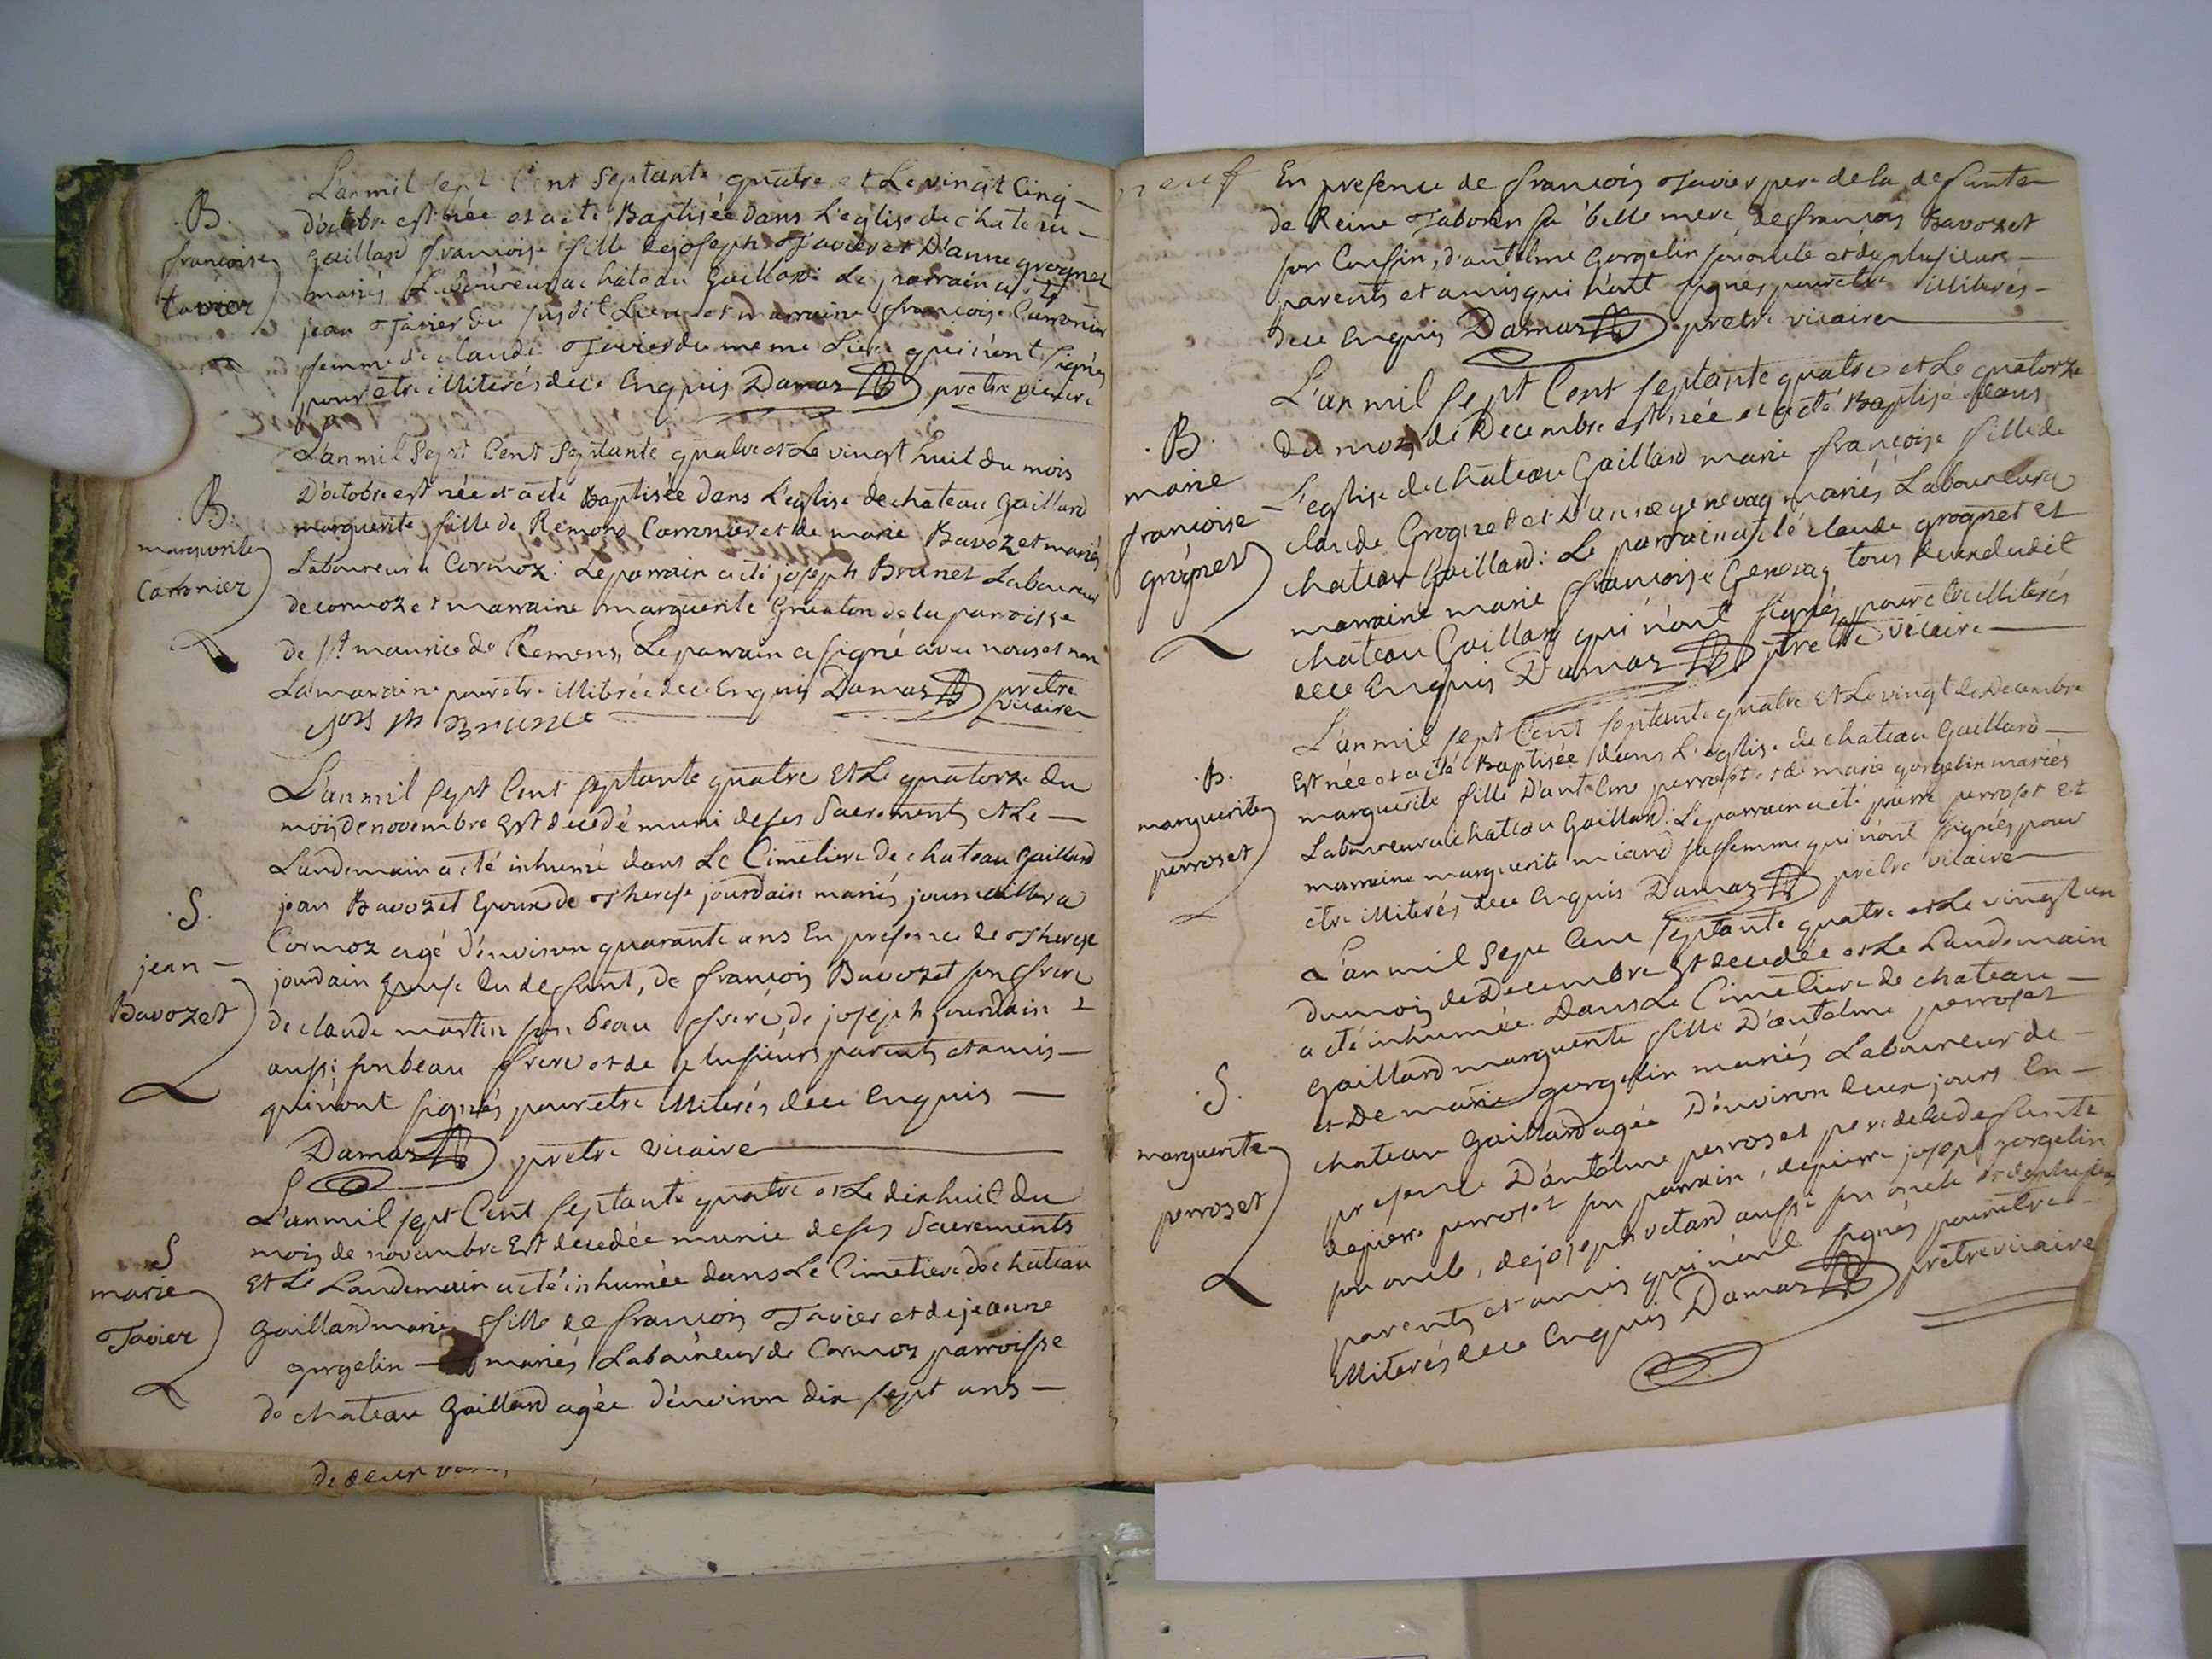 .B.
francoise
tavier
L'an mil sept Cent Septante quatre et Le vingt Cinq
D'octobre est née et a eté Baptisée dans L'eglise de chateau
gaillard francoise fille de joseph Tavier et D'anne grognet
mariés Laboureur a chateau Gaillard: Le parrain a eté
jean Tavier du susdit Lieu et marraine francoise Carronier
femme de claude Tavier du meme Lieu qui n'ont signés
pour etre illiterés de ce Enquis Damaz pretre vicaire
.B.
marguerite
Carronier
L'an mil Sept Cent Septante quatre et Le vingt huit du mois
D'octobre est née et a eté Baptisée dans L'eglise de chateau gaillard
marguerite fille de Remond Carronier et de marie Bavozet mariés
Laboureur a Cormoz: Le parrain a eté joseph Brunet Laboureur
de cormoz et marraine marguerite de la paroisse
de St maurice de Remens, Le parrain a signé avec nous et non
La marraine pour etre illiterée de ce Enquis Damaz pretre
vicaire
joseph Brunet
.S.
jean
Bavozet
L'an mil sept Cent septante quatre Et Le quatorze du
mois de novembre Est decedé muni de ses Sacrements et Le
Landemain a eté inhumé dans Le Cimetiere de chateau gaillard
jean Bavozet Epoux de Therese jourdain mariés journallier a
Cormoz agé d'environ quarante ans En presence de Therese
jourdain Epouse du defunt, de francois Bavozet son frere
de claude martin son beau frere, de joseph jourdain
aussi son beau frere et de plusieurs parents et amis
qui n'ont signés pour etre illiterés de ce Enquis
Damaz pretre vicaire
S
marie
Tavier
L'an mil sept Cent septante quatre et Le dixhuit du
mois de novembre Est decedée munie de ses Sacrements
Et Le Landemain a eté inhumée dans Le Cimetiere de chateau
Gaillard marie fille de francois Tavier et de jeanne
gorgelin mariés Laboureur de Cormoz parroisse
de chateau Gaillard agée d'environ dix sept ans
neuf
En presence de francois Tavier pere de la defunte
de Reine Taborin sa belle mere, de francois Bavozet
son Coussin, d'antelme Gorgelin son oncle et de plusieurs
parents et amis qui n'ont signés pour etre illiterés
de ce Enquis Damaz pretre vicaire
.B.
marie
francoise
grognet
L'an mil sept Cent septante quatre et Le quatorze
du mois de Decembre est née et a eté Baptisée dans
L'eglise de chateau Gaillard marie françoise fille de
claude Grognet et D'anne genevay mariés Laboureur a
chateau Gaillard: Le parrain a eté claude grognet et
marraine marie francoise Genevay tous deux dudit
chateau Gaillard qui n'ont signés pour etre illiterés
de ce Enquis Damaz pretre vicaire
.B.
marguerite
perroset
L'an mil sept Cent septante quatre Et Le vingt de Decembre
Est née et a eté Baptisée dans L'eglise de chateau Gaillard
marguerite fille D'antelme perroset et de marie gorgelin mariés
Laboureur a chateau Gaillard: Le parrain a eté pierre perroset et
marraine marguerite miand sa femme qui n'ont signés pour
etre illiterés de ce Enquis Damaz pretre vicaire
.S.
marguerite
perroset
L'an mil Sept Cent septante quatre et Le vingt un
du mois de Decembre Est decedée et Le Landemain
a eté inhumée Dans Le Cimetiere de chateau
gaillard marguerite fille D'antelme perroset
et De marie gorgelin mariés Laboureur de
chateau Gaillard agée D'environ deux jours En
presence D'antelme perroset pere de la defunte
de pierre perroset son parrain, de pierre joseph gorgelin
son oncle, de joseph aussi son oncle et de plusieurs
parents et amis qui n'ont signés pour etre
illiterés de ce Enquis Damaz pretre vicaire